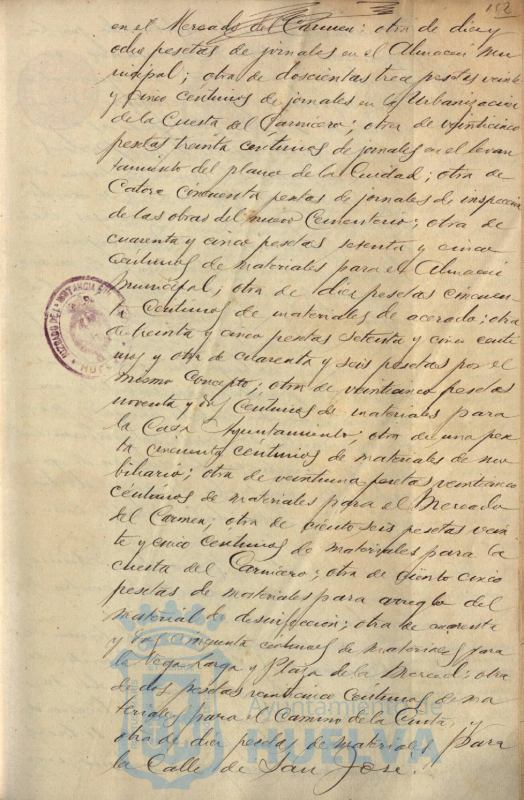 152
en el Mercado del Carmen; otra de diez y
ocho pesetas de jornales en el Almacén Mu-
nicipal; otra de doscientas trece pesetas veinte
y cinco céntimos de jornales en la Urbanización
de la Cuesta del Carnicero; otra de veinticinco
pesetas treinta céntimos de jornales en el levan-
tamiento del plano de la Ciudad; otra de
Catorce cincuenta pesetas de jornales de inspección
de las obras del nuevo Cementerio; otra de
cuarenta y cinco pesetas setenta y cinco
céntimos de materiales para el Almacén
Municipal; otra de diez pesetas cincuen-
ta céntimos de materiales de acerado; otra
de treinta y cinco pesetas setenta y cinco cénti-
mos y otra de cuarenta y seis pesetas por el
mismo concepto; otra de veinticinco pesetas
noventa y dos céntimos de materiales para
la Casa Ayuntamiento; otra de una pese-
ta cincuenta céntimos de materiales de mo-
biliario; otra de veintiuna pesetas veinticinco
céntimos de materiales para el Mercado
del Carmen; otra de ciento seis pesetas vein-
te y cinco céntimos de materiales para la
cuesta del Carnicero; otra de ciento cinco
pesetas de materiales para arreglo del
material de desinfección; otra de cuarenta
y dos cincuenta céntimos de materiales para
la Vega Larga y Plaza de la Merced; otra
de dos pesetas veinticinco céntimos de ma-
teriales para el Camino de la Cinta, y
otra de diez pesetas de materiales para
la Calle de San José.
JUZGADO DE 1ª INSTANCIA
Ayuntamiento de
HUELVA